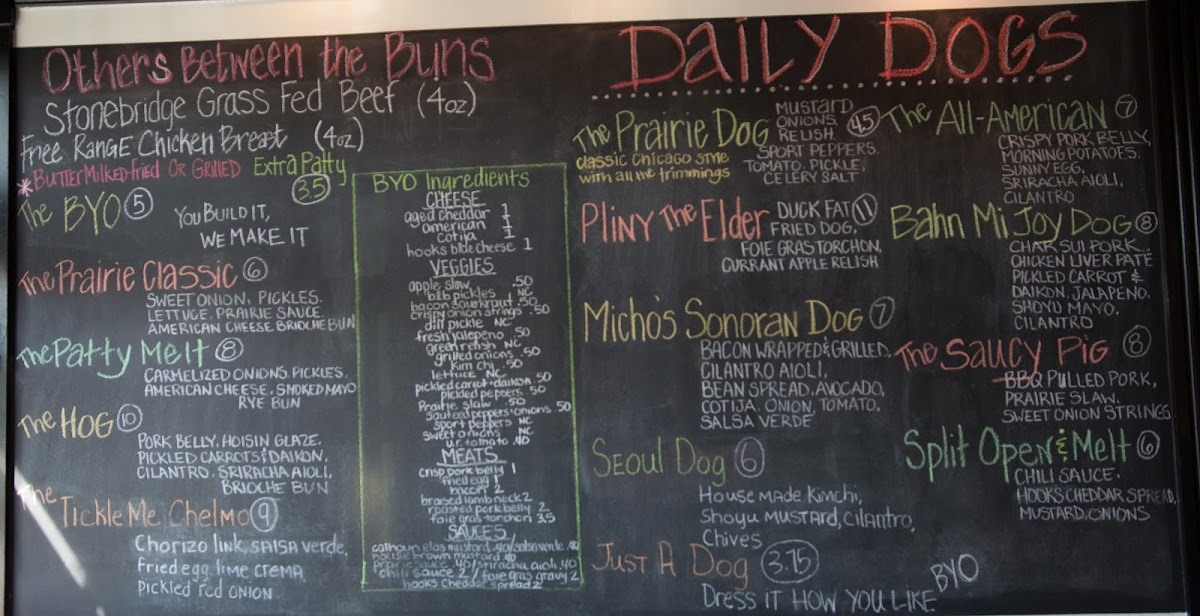 Others Between the Buns
Stonebridge Grass Fed Beef (4oz)
Free Range Chicken Breast (4oz)
*Butter Milked Fried Or Grilled
Extra Patty
3.5
The BYO 5
You Build it,
We Make it
The Prairie Classic 6
Sweet Onion, Pickles,
Lettuce, Prairie Sauce
American Cheese, Brioche Bun
The Patty Melt 8
Carmelized Onions, Pickles,
American Cheese, Smoked Mayo
Rye Bun
The Hog 10
Pork Belly, Hoisin Glaze,
Pickled Carrots & Daikon,
Cilantro, Sriracha Aioli,
Brioche Bun
The Tickle Me Chelmo 9
Chorizo link, Salsa Verde,
Fried egg, lime crema
Pickled red onion
BYO Ingredients
CHEESE
aged cheddar 1
american 1
cotija 1
hooks blue cheese 1
VEGGIES
apple slaw .50
b&b pickles NC
bacon sourkraut .50
crispy onion strings .50
dill pickle NC
fresh jalepeno .50
green relish NC
grilled onions .50
Kim chi .50
lettuce NC
pickled carrot+daikon .50
pickled peppers .50
Prairie slaw .50
Sauteed peppers+onions .50
sport peppers NC
sweet onions NC
tomato .40
MEATS
crisp pork belly 1
fried egg 1
bacon 2
braised lamb neck 2
roasted pork belly 2
foie gras torchon 3.5
SAUCES
mustard .40/salsa verde .40
house brown mustard .40
Prairie sauce .40/sriracha aioli .40
chili sauce 2/foie gras gravy 2
hooks cheddar spread 2
Daily Dogs
The Prairie Dog 4.5
classic Chicago style
with all the trimmings
Mustard
Onions,
Relish,
Sport Peppers,
Tomato, Pickle,
Celery Salt
Pliny The Elder 11
Duck Fat
Fried Dog,
Foie Gras Torchon,
Currant Apple Relish
Micho's Sonoran Dog 7
Bacon Wrapped & Grilled,
Cilantro Aioli,
Bean Spread, Avocado,
Cotija, Onion, Tomato,
Salsa Verde
Seoul Dog 6
House made Kimchi,
Shoyu Mustard, Cilantro,
Chives
Just A Dog 3.75
Dress it how you like BYO
The All-American 7
Crispy Pork Belly,
Morning Potatoes,
Sunny Egg,
Sriracha Aioli,
Cilantro
Bahn Mi Joy Dog 8
Char Sui Pork,
Chicken Liver Pate
Pickled Carrot &
Daikon, Jalapeno,
Shoyu Mayo,
Cilantro
The Saucy Pig 8
BBQ Pulled Pork,
Prairie Slaw,
Sweet Onion Strings
Split Open & Melt 6
Chili Sauce,
Hooks Cheddar Spread,
Mustard, Onions